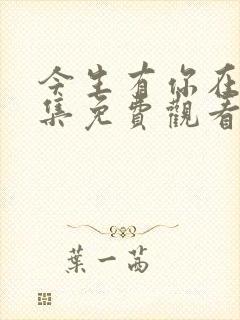 今生有你在
集免費觀看
葉一茜